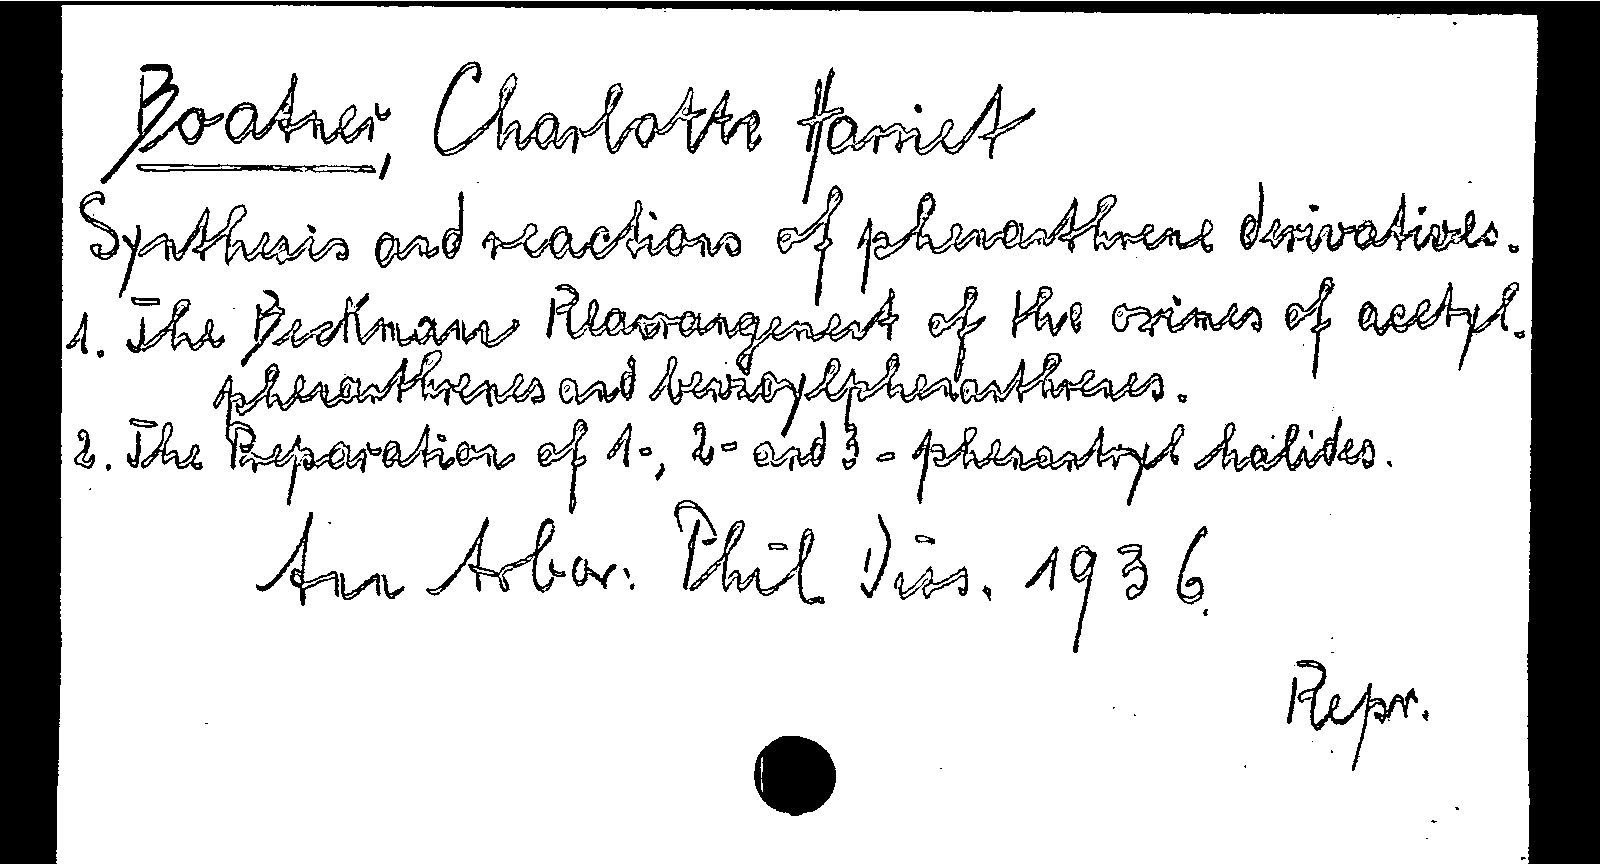 Boatner, Charlotte Harriet
Synthesis and reactions of phenanthrene derivatives.
1. The Beckmann Rearrangement of the oximes of acetyl.
phenanthrenes and benzoylphenanthrenes.
2. The Preparation of 1-, 2- and 3-phenantryl halides.
Ann Arbor: Phil Diss. 1936.
Repr.